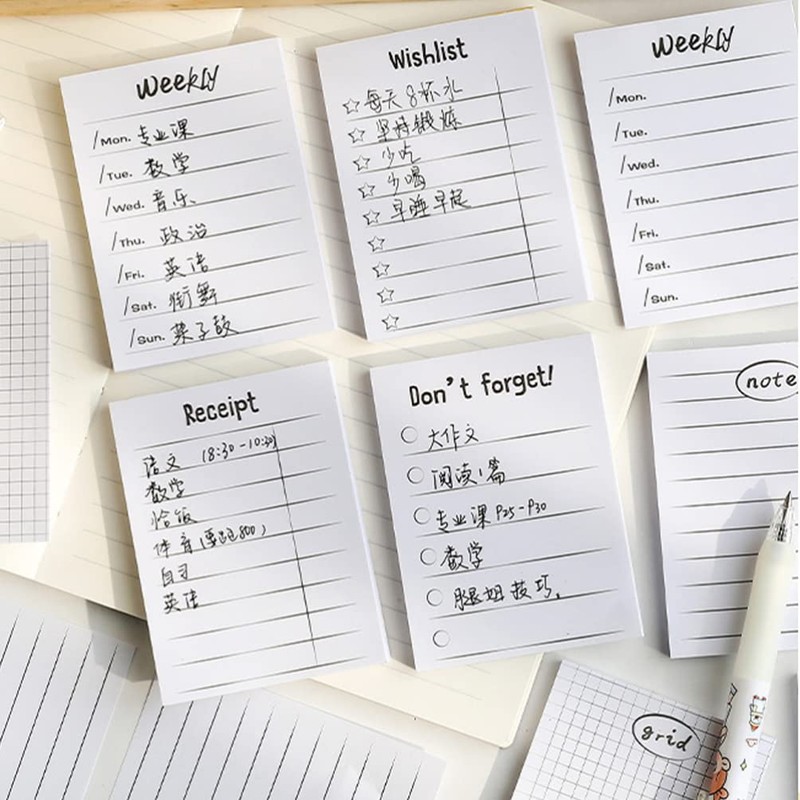 Weekly
/Mon. 专业课
/Tue. 数学
/Wed. 音乐
/Thu. 政治
/Fri. 英语
/Sat. 街舞
/Sun. 架子鼓
Wishlist
☆每天8杯水
☆坚持锻炼
☆少吃
☆少喝
☆早睡早起
☆
☆
☆
☆
Weekly
/Mon.
/Tue.
/Wed.
/Thu.
/Fri.
/Sat.
/Sun.
Receipt
语文 (8:30-10:30)
数学
恰饭
体育(要跑800)
自习
英语
Don't forget!
○大作文
○阅读1篇
○专业课P25-P30
○数学
○腿姐技巧。
○
note
grid